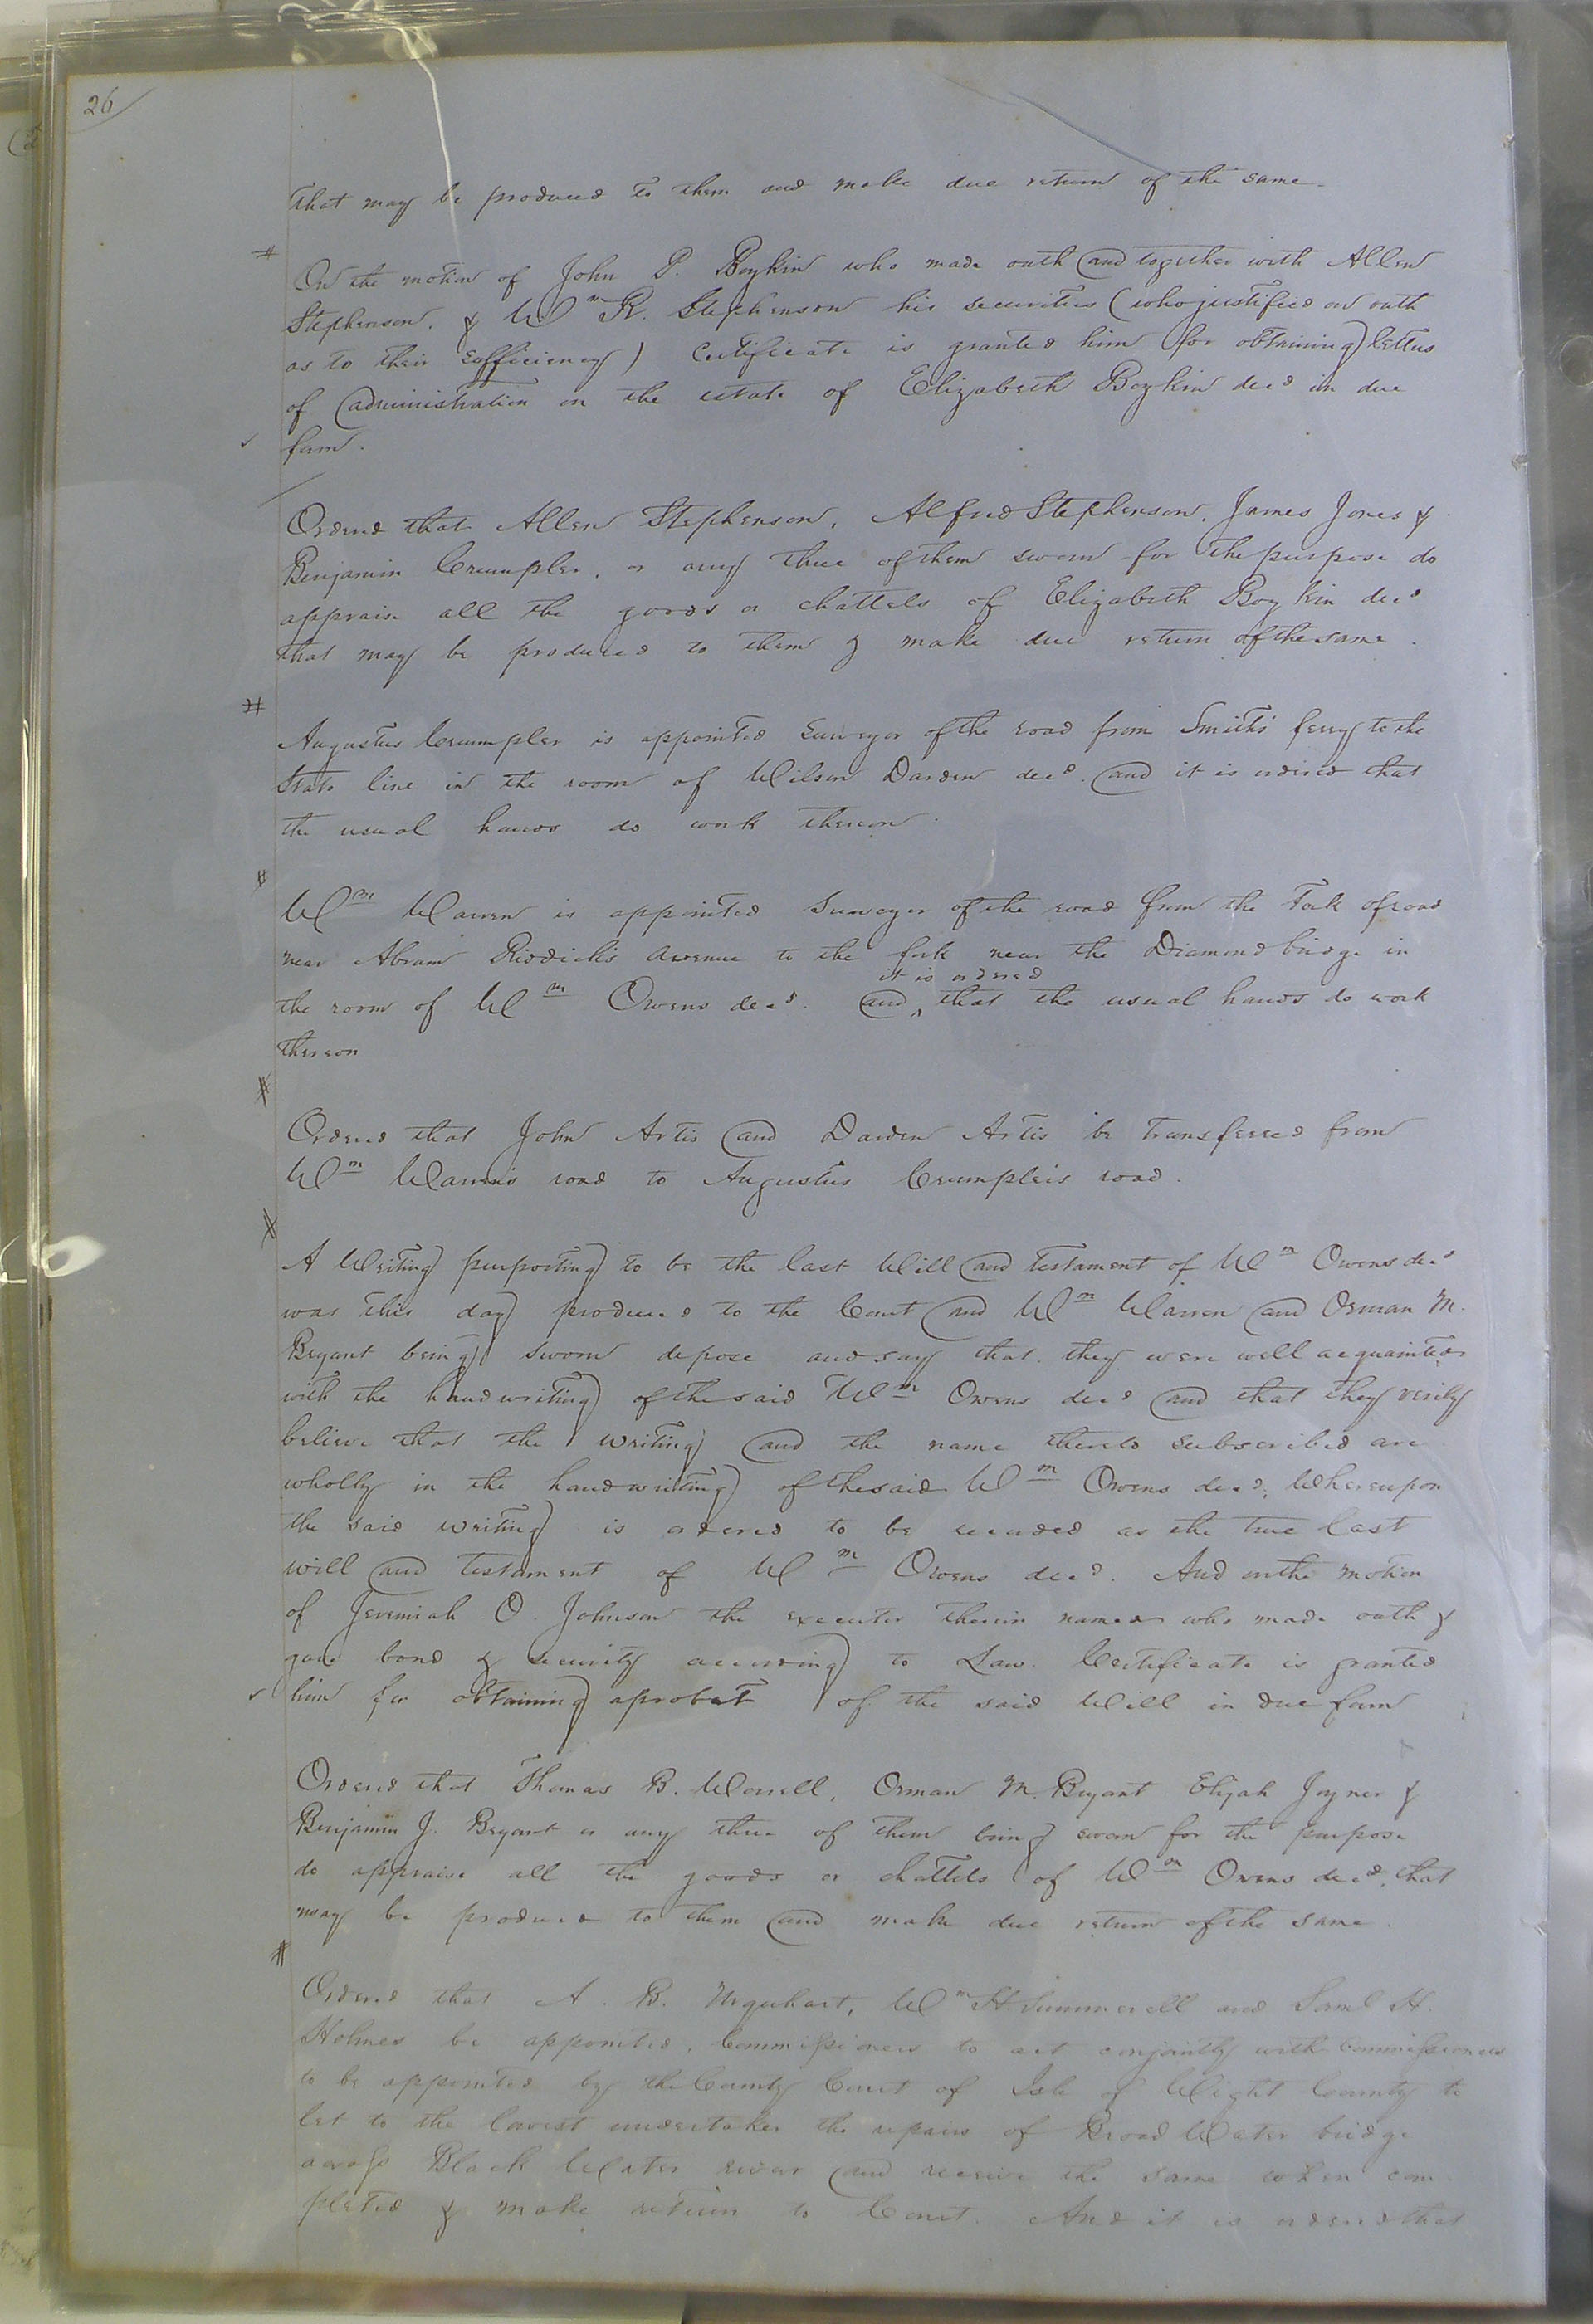 26
that may be produced to them and make due return of the same.
On the motion of John P. Boykin who made oath and together with Allen
Stephenson, & Wm R. Stephenson his securities (who justified on oath
as to their sufficiency) Certificate is granted him for obtaining letters
of administration on the estate of Elizabeth Boykin decd in due
form.
Ordered that Allen Stephenson, Alfred Stephenson, James Jones &
Benjamin Crumpler, or any three of them sworn for the purpose do
appraise all the goods or chattels of Elizabeth Boykin decd
that may be produced to them & make due return of the same.
Augustus Crumpler is appointed Surveyor of the road from Smith's ferry to the
State line in the room of Wilson Darden decd. and it is ordered that
the usual hands do work thereon.
Wm Warren is appointed Surveyor of the road from the Fork of road
near Abram Riddick's avenue to the fork near the Diamond bridge in
it is ordered
the room of Wm Owens decd. and ^ that the usual hands do work
thereon
Ordered that John Artis and Darden Artis be transferred from
Wm Warren's road to Augustus Crumpler's road.
A Writing purporting to be the last Will and testament of Wm Owens decd
was this day produced to the Court and Wm Warren and Orman M.
Bryant being sworn depose and say that they were well acquainted
with the handwriting of the said Wm Owens decd and that they verily
believe that the writing and the name thereto subscribed are
wholly in the handwriting of the said Wm Owens decd, Whereupon
the said writing is ordered to be recorded as the true last
will and testament of Wm Owens decd. And on the motion
of Jeremiah O. Johnson the executor therein named who made oath &
gave bond & security according to Law. Certificate is granted
him for obtaining a probat of the said Will in due form
Ordered that Thomas B. Worrell, Orman M. Bryant Elijah Joyner &
Benjamin J. Bryant or any three of them being sworn for the purpose
do appraise all the goods or chattels of Wm Owens decd, that
may be produced to them and make due return of the same.
Ordered that A. B. Urquhart, Wm H. Summerell and Saml H.
Holmes be appointed, Commissioners to act conjointly with Commissioners
to be appointed by the County Court of Isle of Wight County to
let to the lowest undertaker the repairs of Broad Water bridge
across Black Water river and receive the same when com
pleted & make return to Court. And it is ordered that